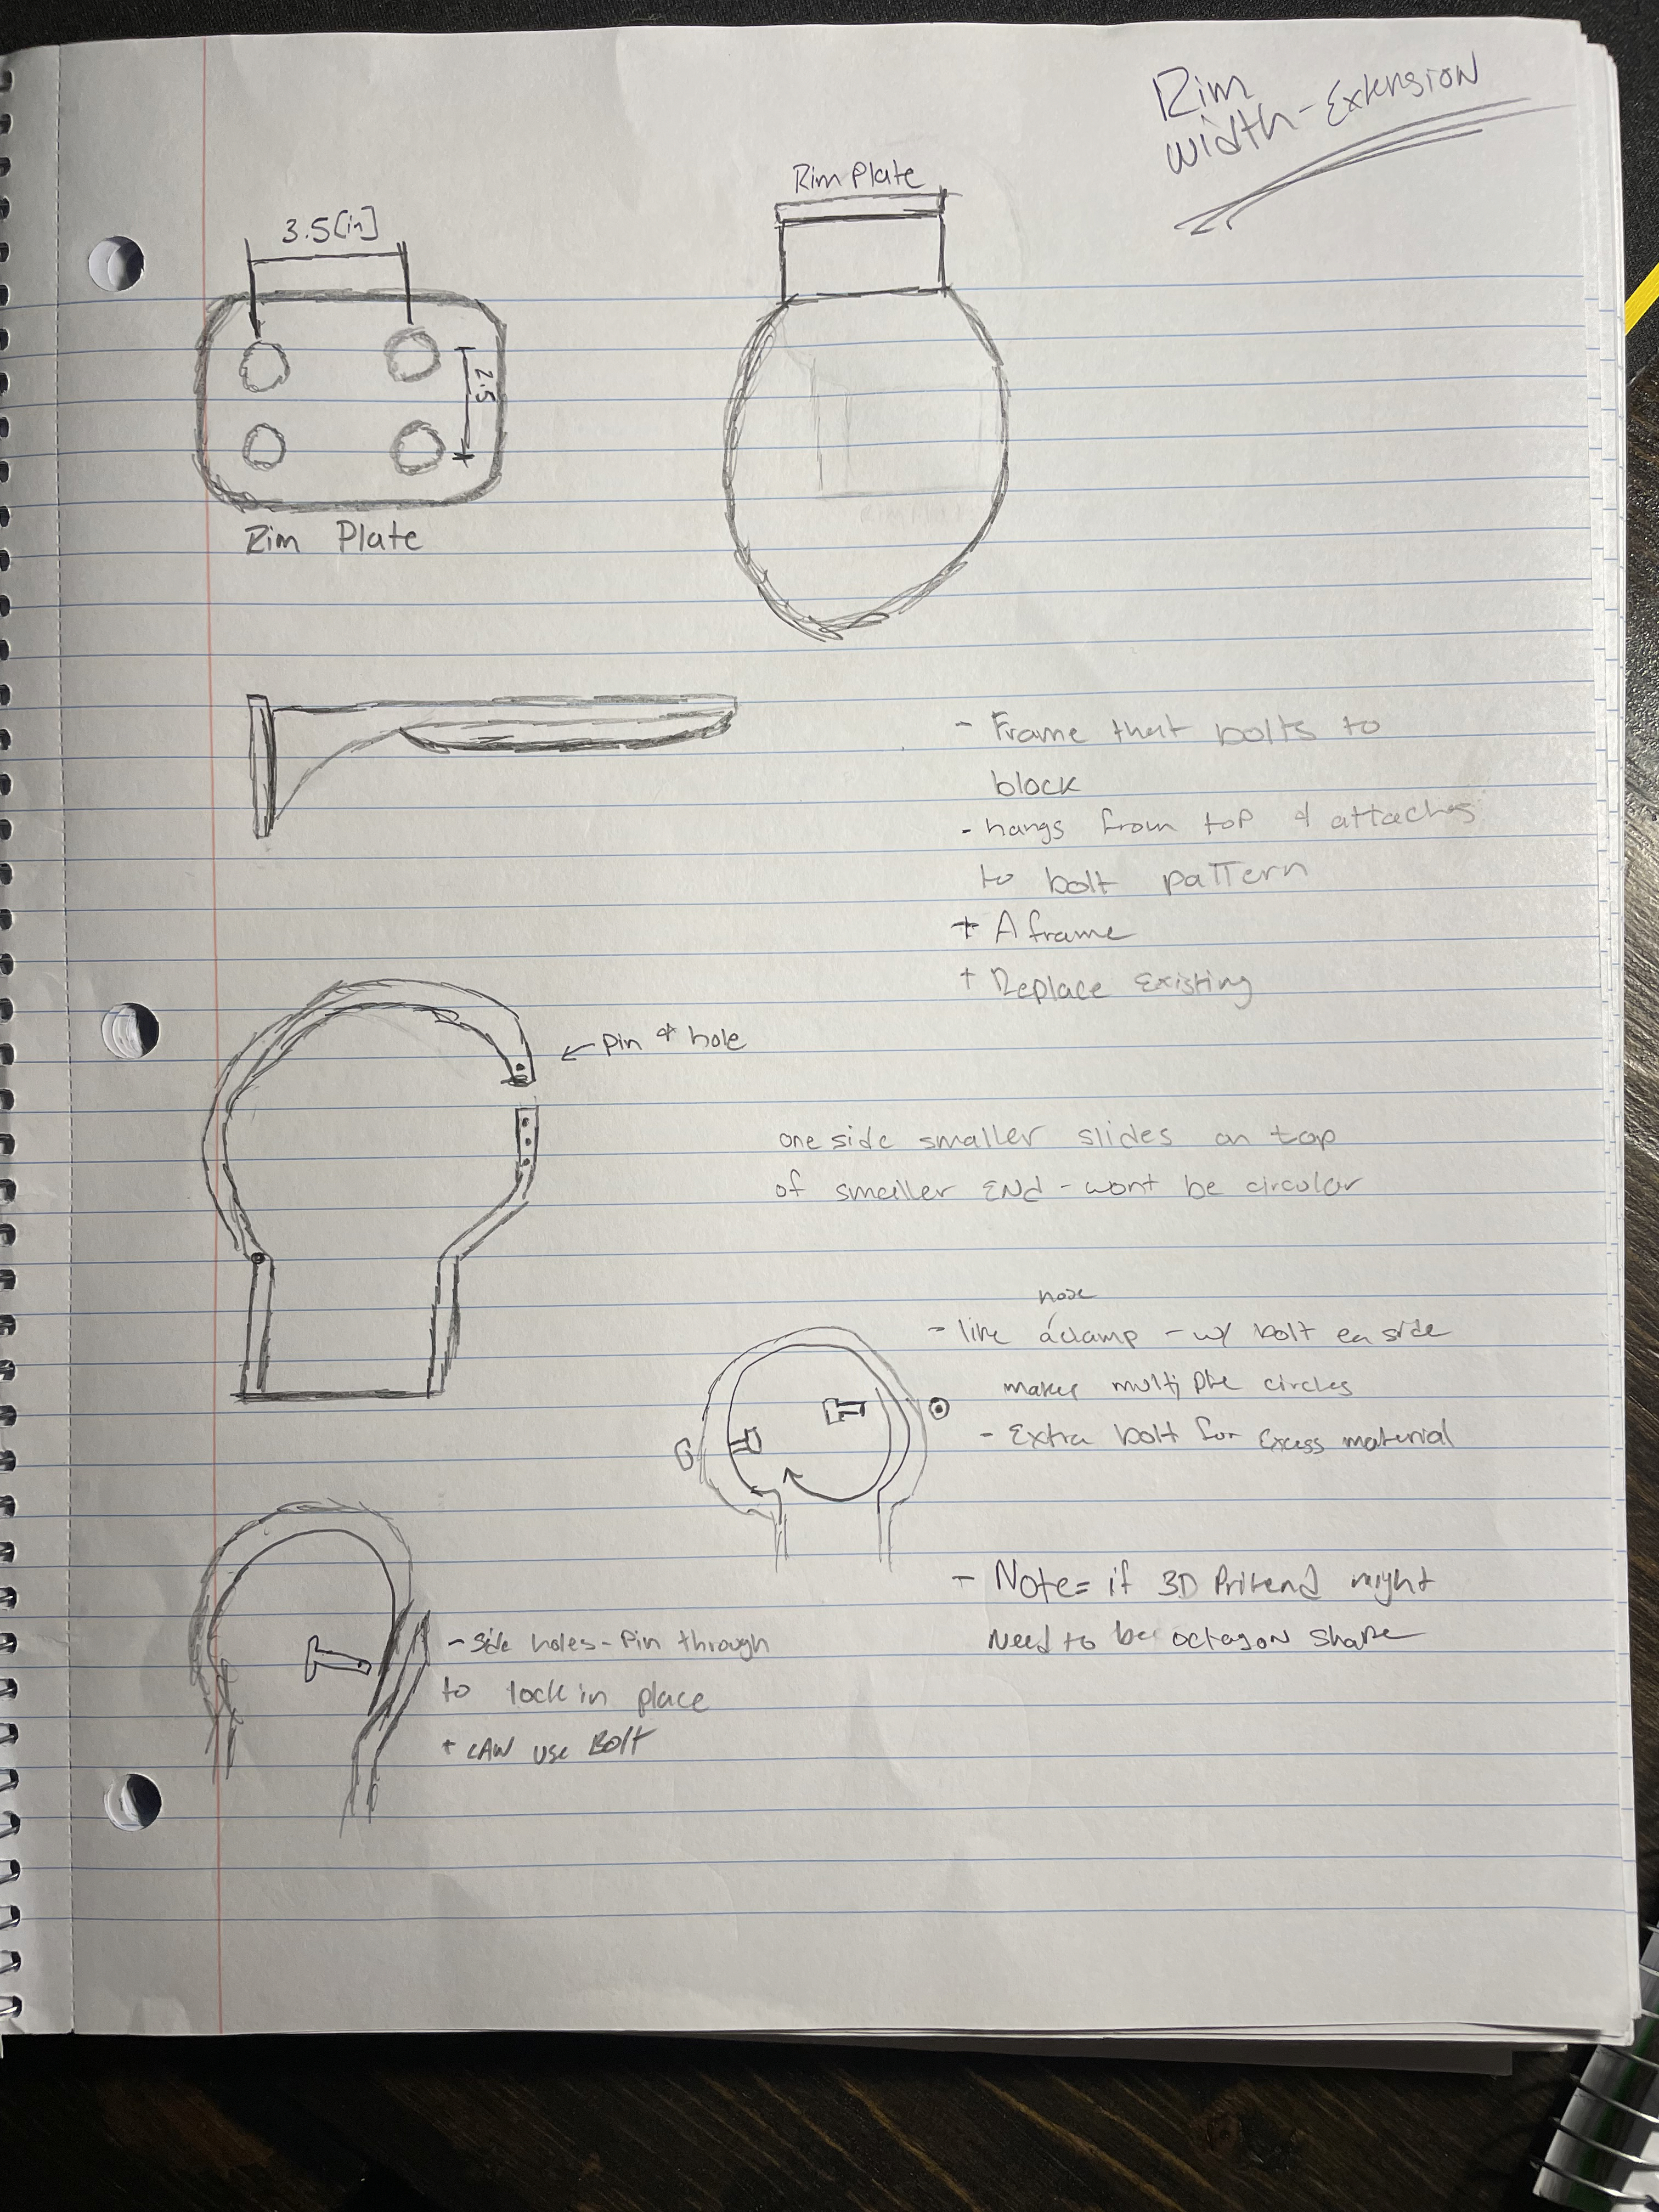 Rim
Width-Extension
Rim Plate
3.5[in]
2.5
Rim Plate
- Frame that bolts to
block
- hangs from top & attaches
to bolt pattern
+ A frame
+ Replace Existing
← Pin & hole
one side smaller slides on top
of smaller END - wont be circular
hose
- like a clamp - w/ bolt ea side
makes multiple circles
- Extra bolt for Excess material
- Note= if 3D might
Need to be octagon shape
- Side holes - Pin through
to lock in place
+ CAN USE Bolt